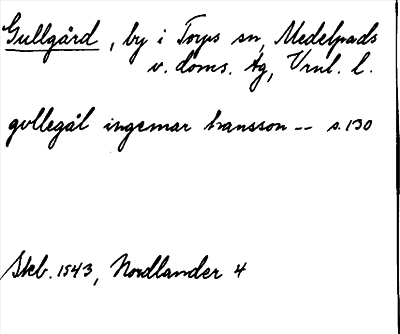 Gullgård, by i Torps sn, Medelpads
v. doms. tg, Vrnl. l.
gullegål ingemar hansson -- s. 130
Skb. 1543, Nordlander 4